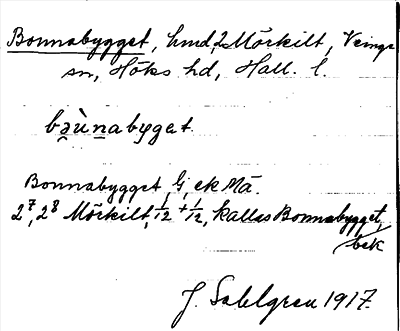 Bonnabygget, hmd, 2 Mörkilt, Veinge
sn, Höks hd, Hall. l.
bau̇̀nabyget
Bonnabygget G. ek Mä.
2⁷, 2⁸ Mörkilt, 1/12 + 1/12, kallas Bonnabygget,
bek
J. Sahlgren 1917.